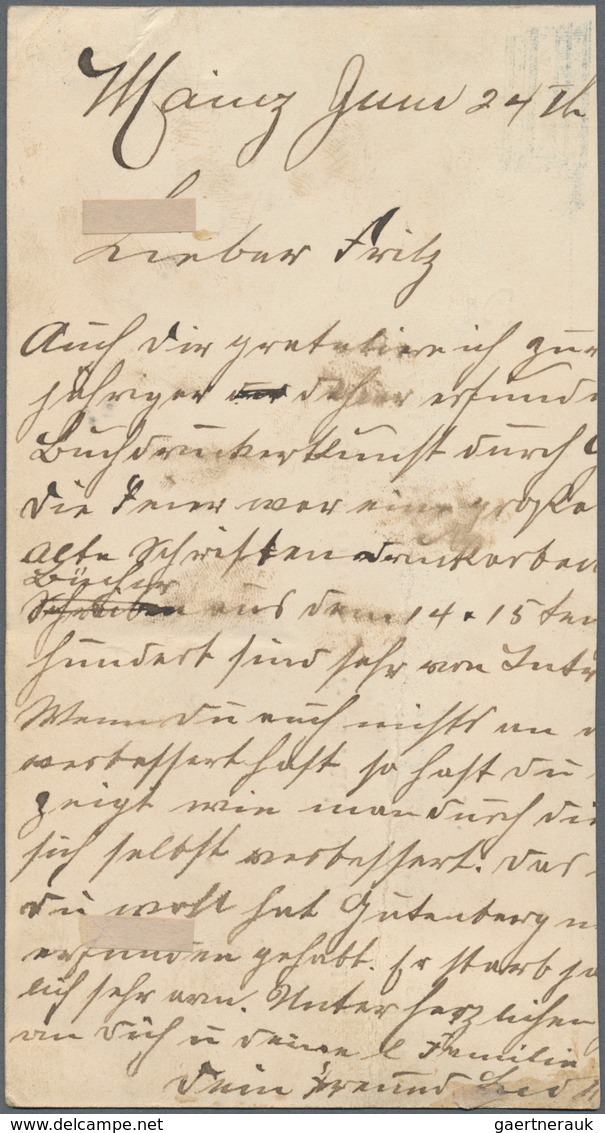 Mainz Juni 24th
Lieber Fritz
Auch dir gratuliere ich zur
jähriger dahier erfunde
Buchdruckerkunst durch G
die Feier war eine große
Alte Schriften druckarbei
Bücher
Schreiben aus dem 14 & 15 ten
hundert sind sehr von Intr
Wenn du auch nichts an d
verbessert hast so hast du
zeigt wie man durch die
sich selbst verbessert. Das
du hat Gutenberg n
erfunden gehabt. Er starb ja
lich sehr arm. Unter herzlichen
an dich u deine l Familie
Dein Freund
www.delcampe.net
gaertnerauk